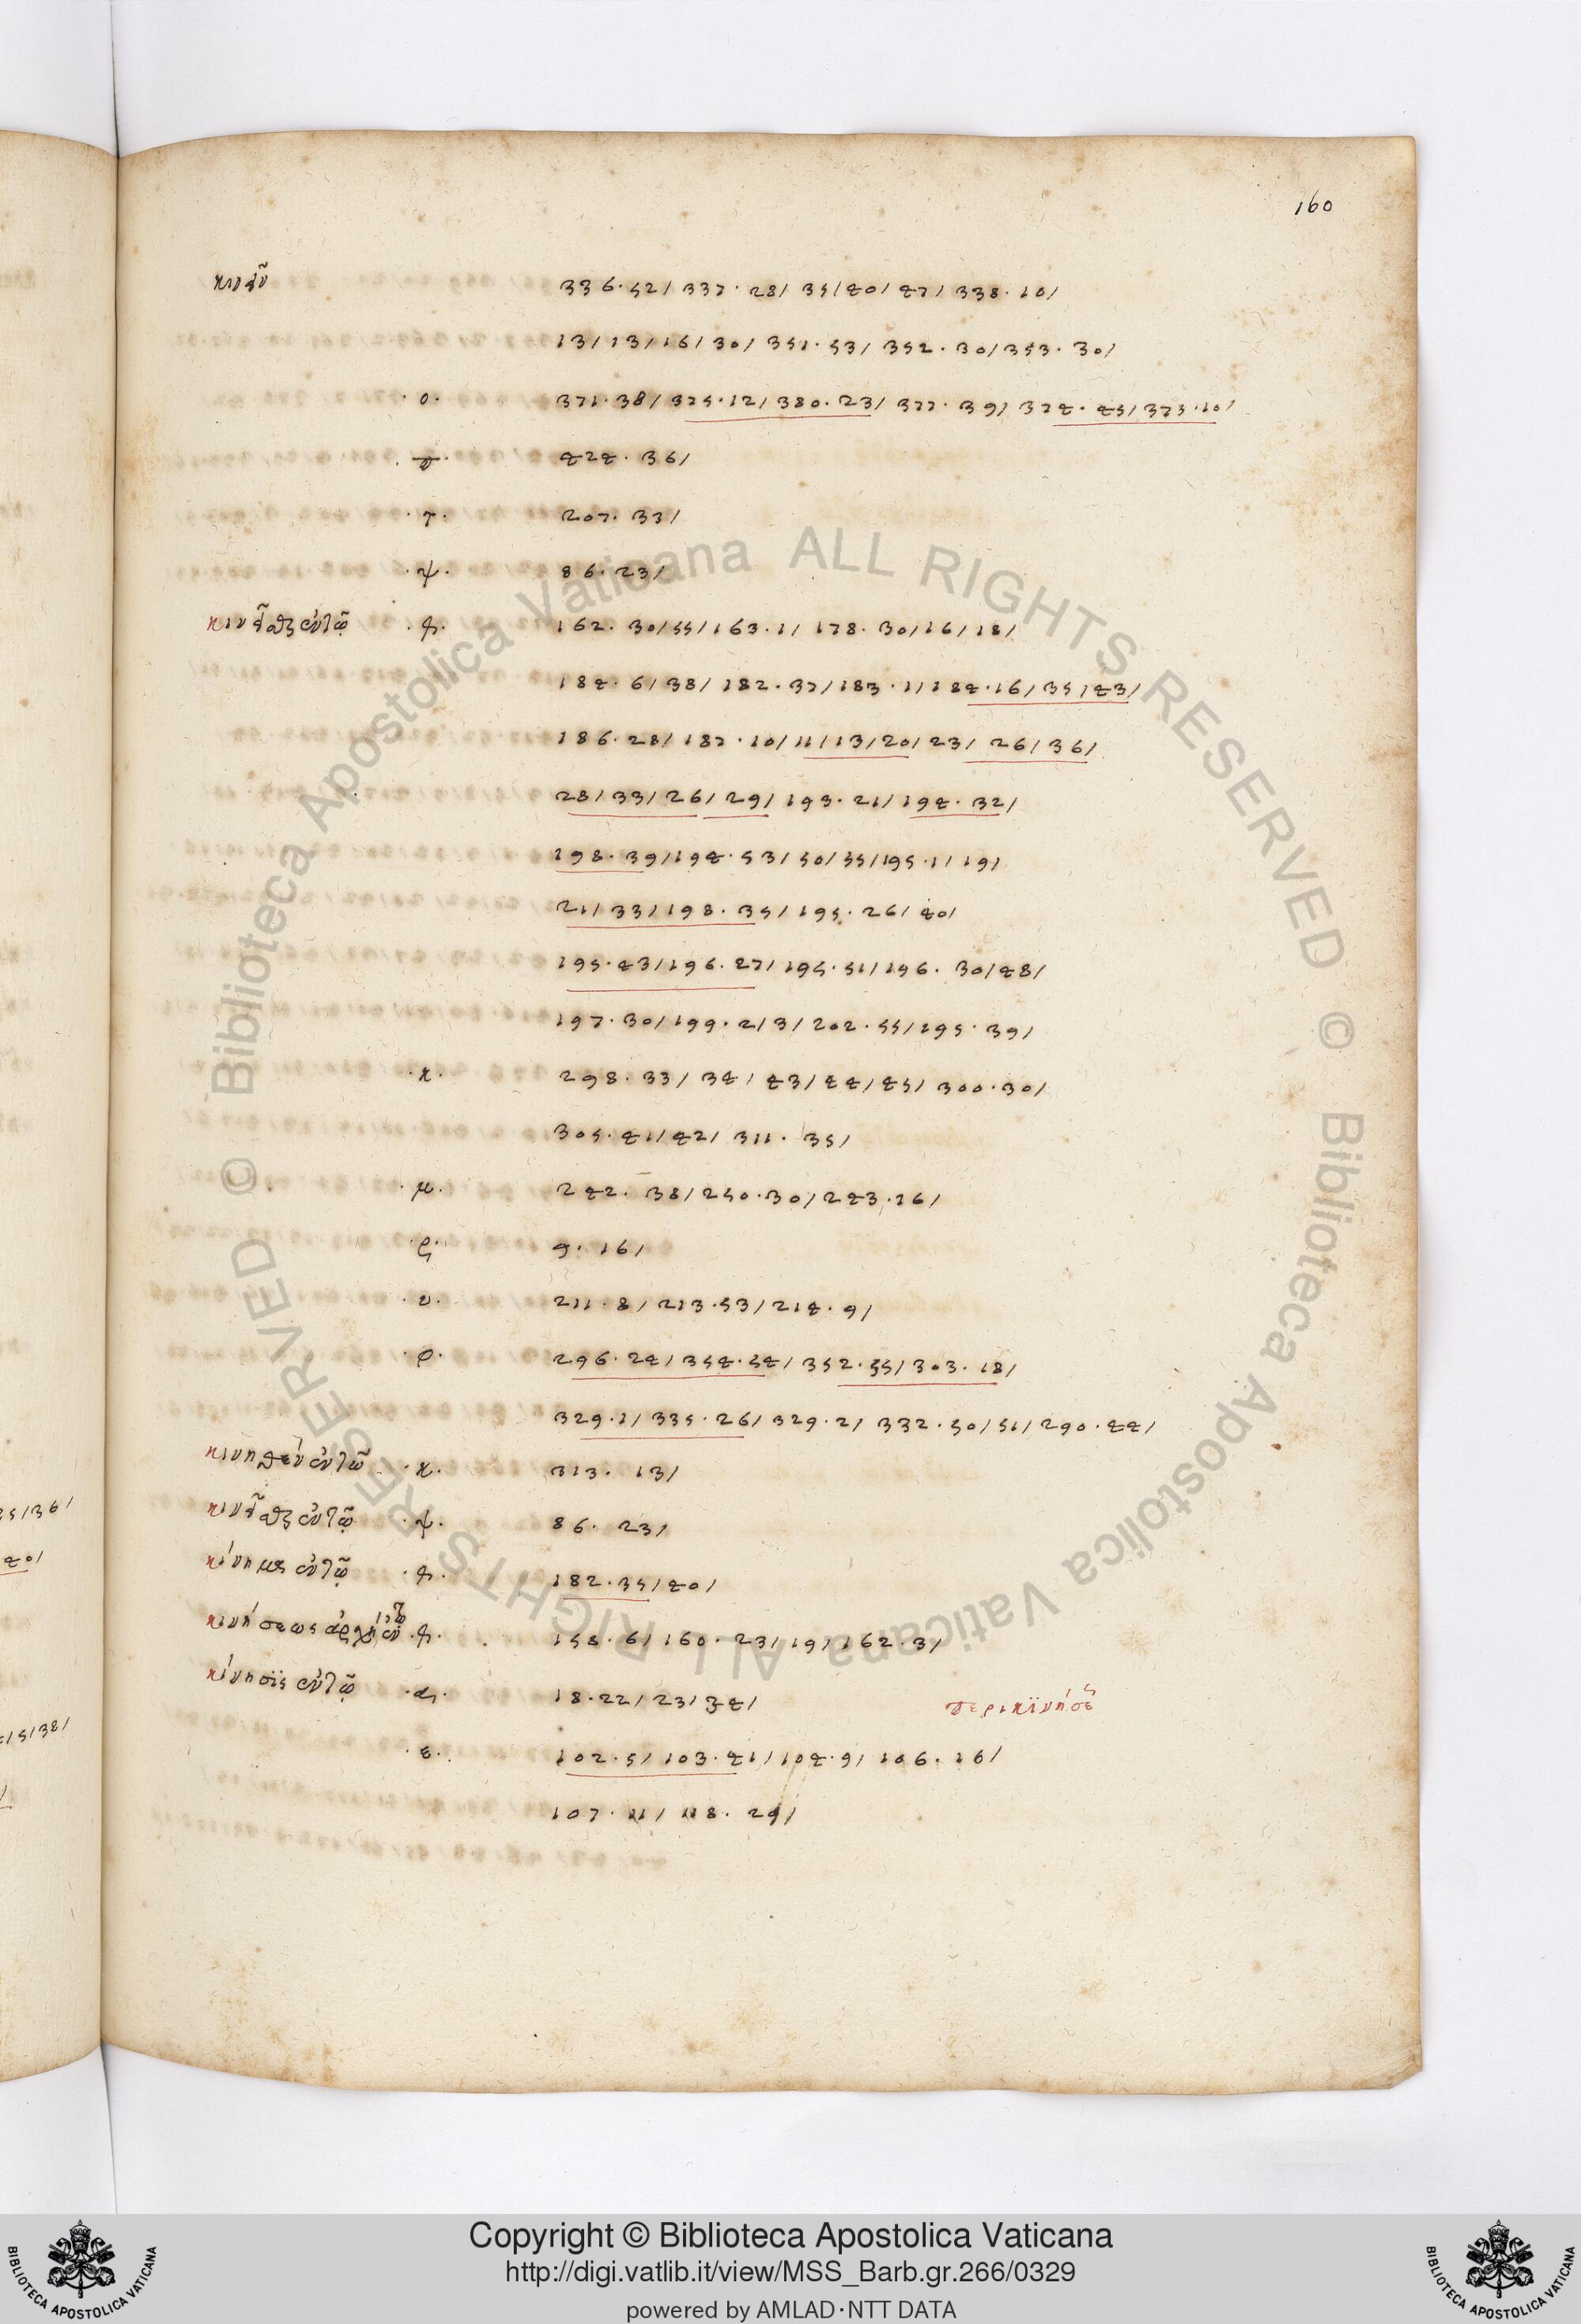 160
κινεῖν 336·52/ 337·28/ 35/40/47/ 338·10/
13/13/16/30/ 351·53/ 352·30/353·30/
·ο· 371·38/375·12/380·23/ 377·39/ 374·45/373·10/
424·36/
·τ· 207·33/
·ψ· 86·23/
κινεῖσθαι ἐν τῷ ·φ· 162·30/55/163·1/ 178·30/16/18/
184·6/38/ 182·37/183·1/184·16/35/43/
186·28/ 187·10/11/13/20/23/ 26/36/
28/33/26/29/ 193·21/194·32/
198·39/194·53/50/35/195·1/19/
21/33/198·35/195·26/40/
195·43/196·27/195·51/196·30/48/
197·30/199·2/3/202·55/195·39/
·κ· 298·33/34/43/44/45/300·30/
305·41/42/ 311·35/
·μ· 242·38/250·30/243·16/
9·16/
·υ· 211·8/ 213·53/214·9/
·ρ· 296·24/354·54/352·55/303·18/
329·1/ 335·26/ 329·2/ 332·50/51/290·44/
κινηθὲν ἐν τῷ ·κ· 313·13/
κινεῖσθαι ἐν τῷ ·ψ· 86·23/
ἐν τῷ ·φ· 182·35/40/
κινήσεως ἀρχὴ ἐν τῷ ·φ· 158·6/160·23/19/162·3/
κίνησϊς ἐν τῷ ·α· 18·22/23/34/ περικϊνήσε
·ε· 102·5/103·41/104·9/ 106·16/
107·11/ 118·29/
Copyright © Biblioteca Apostolica Vaticana
http://digi.vatlib.it/view/MSS_Barb.gr.266/0329
powered by AMLAD·NTT DATA
BIBLIOTECA APOSTOLICA VATICANA
BIBLIOTECA APOSTOLICA VATICANA
© Biblioteca Apostolica Vaticana ALL RIGHTS RESERVED
© Biblioteca Apostolica Vaticana ALL RIGHTS RESERVED